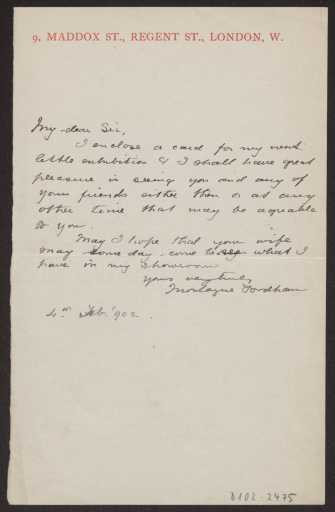 9, MADDOX ST., REGENT ST., LONDON, W.
My dear Sir,
I enclose a card for my next
little exhibition & I shall have great
pleasure in seeing you and any of
your friends either then or at any
other time that may be agreeable
to you.
May I hope that your wife
may some day come to see what I
have in my Showroom
Yours very truly,
Montague Fordham
4th Feb. 1902.
B102-2475